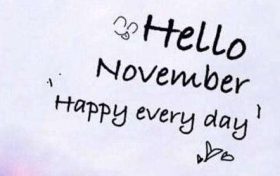 Hello
November
'Happy every day'